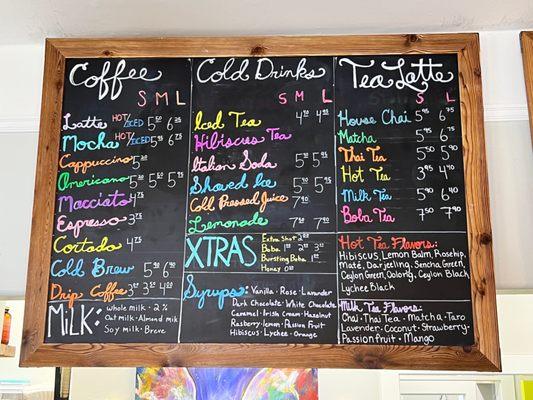 Coffee
S M L
Latte HOT/ICED 5⁵⁰ 6³⁵
Mocha HOT/ICED
Cappuccino 5³⁰
Americano
Macciato 4⁷⁵
Espresso 3⁷⁵
Cortado 4⁷⁵
Cold Brew 5⁴⁰ 6⁹⁰
Drip Coffee
Milk:
whole milk · 2%
Oat milk · Almond milk
Soy milk · Breve
Cold Drinks
S M L
Iced Tea
Hibiscus Tea
Italian Soda
Shaved Ice
Cold Pressed Juice
Lemonade
XTRAS
Extra Shot
Boba
Bursting Boba
Honey
Syrups:
Vanilla · Rose · Lavander
Dark Chocolate · White Chocolate
Caramel · Irish Cream · Hazelnut
Rasberry · lemon · Passion Fruit
Hibiscus · Lychee · Orange
Tea Latte
S L
House Chai
Matcha
Thai Tea
Hot Tea
Milk Tea
Boba Tea
Hot Tea Flavors:
Hibiscus, Lemon Balm, Rosehip,
Maté, Darjeeling, Sencha Green,
Ceylon Green, Oolong, Ceylon Black
Lychee Black
Milk Tea Flavors:
Chai · Thai Tea · Matcha · Taro
Lavender · Coconut · Strawberry
Passion fruit · Mango